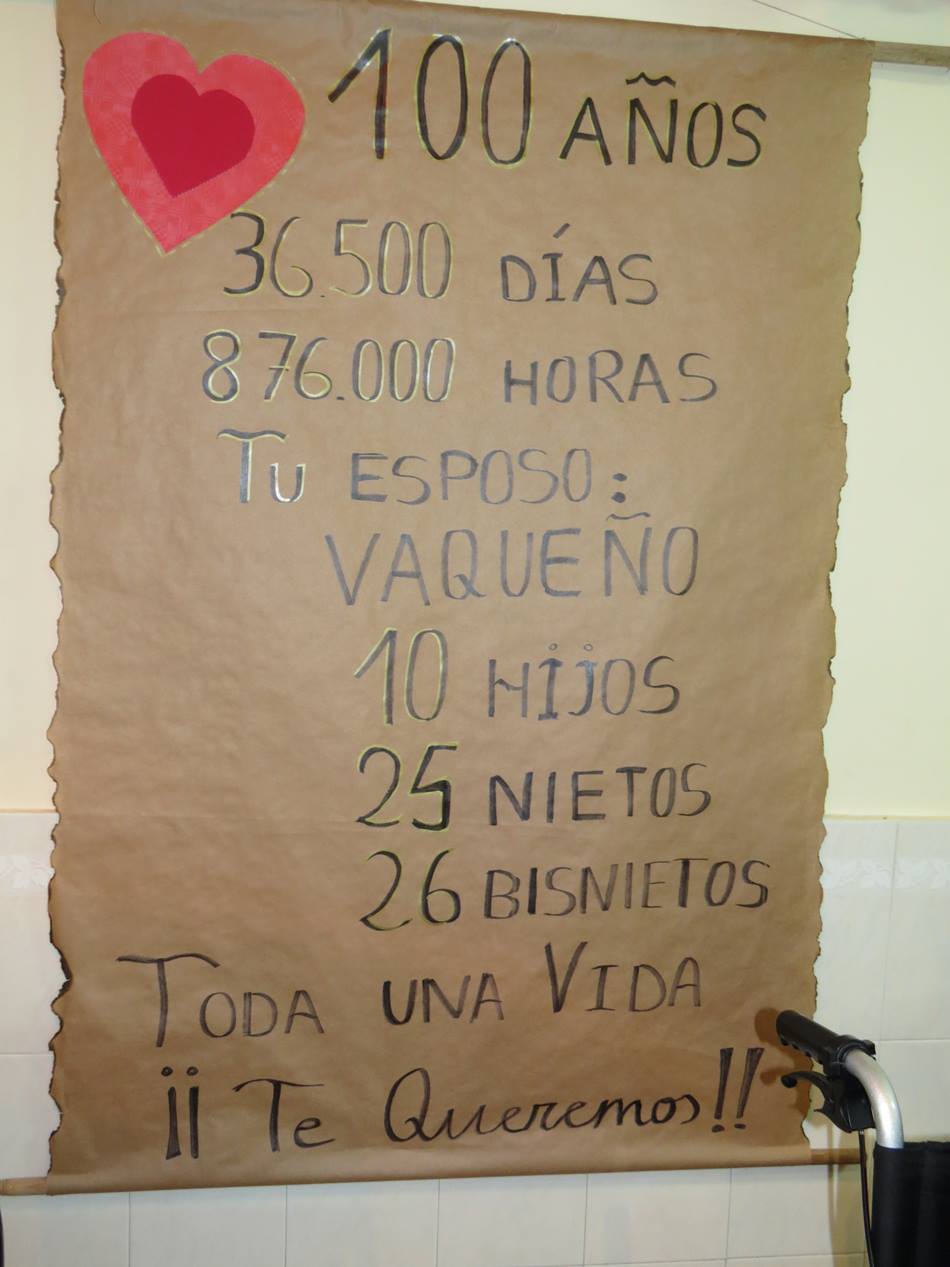 100 AÑOS
36.500 DÍAS
876.000 HORAS
Tu ESPOSO:
VAQUEÑO
10 HIJOS
25 NIETOS
26 BISNIETOS
TODA UNA VIDA
¡¡ Te Queremos!!